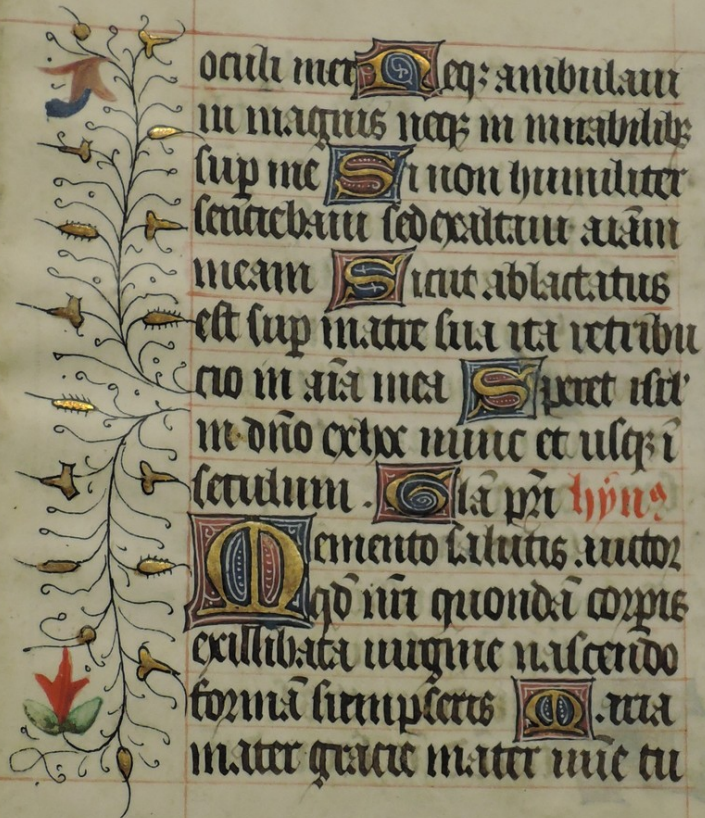 oculi mei Neq; ambulaui
in magnis neq; in mirabilib;
sup me Si non humiliter
sentiebam sed exaltaui aīam
meam Sicut ablactatus
est sup matre sua ita retribu
cio in aīa mea Speret isrl'
in dño ex hoc nunc et usq; ī
seculum . Glā pri hyn9
Memento salutis auctor
qd nri quondā corpis
ex illibata uirgine nascendo
formā sumpseris Maria
mater gracie mater mīe tu